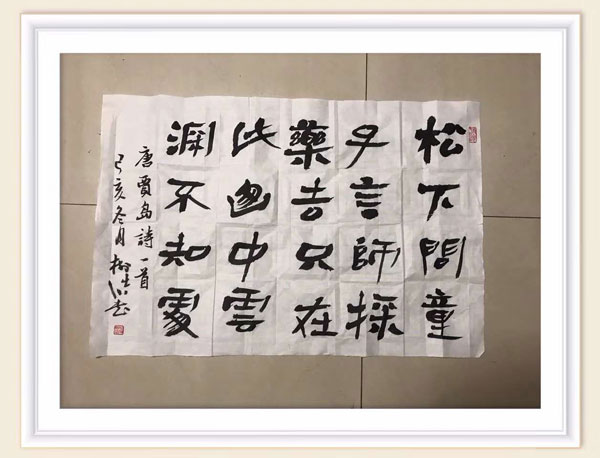 松下問童
子言師採
藥去只在
此山中雲
深不知處
唐賈島詩一首
己亥冬月